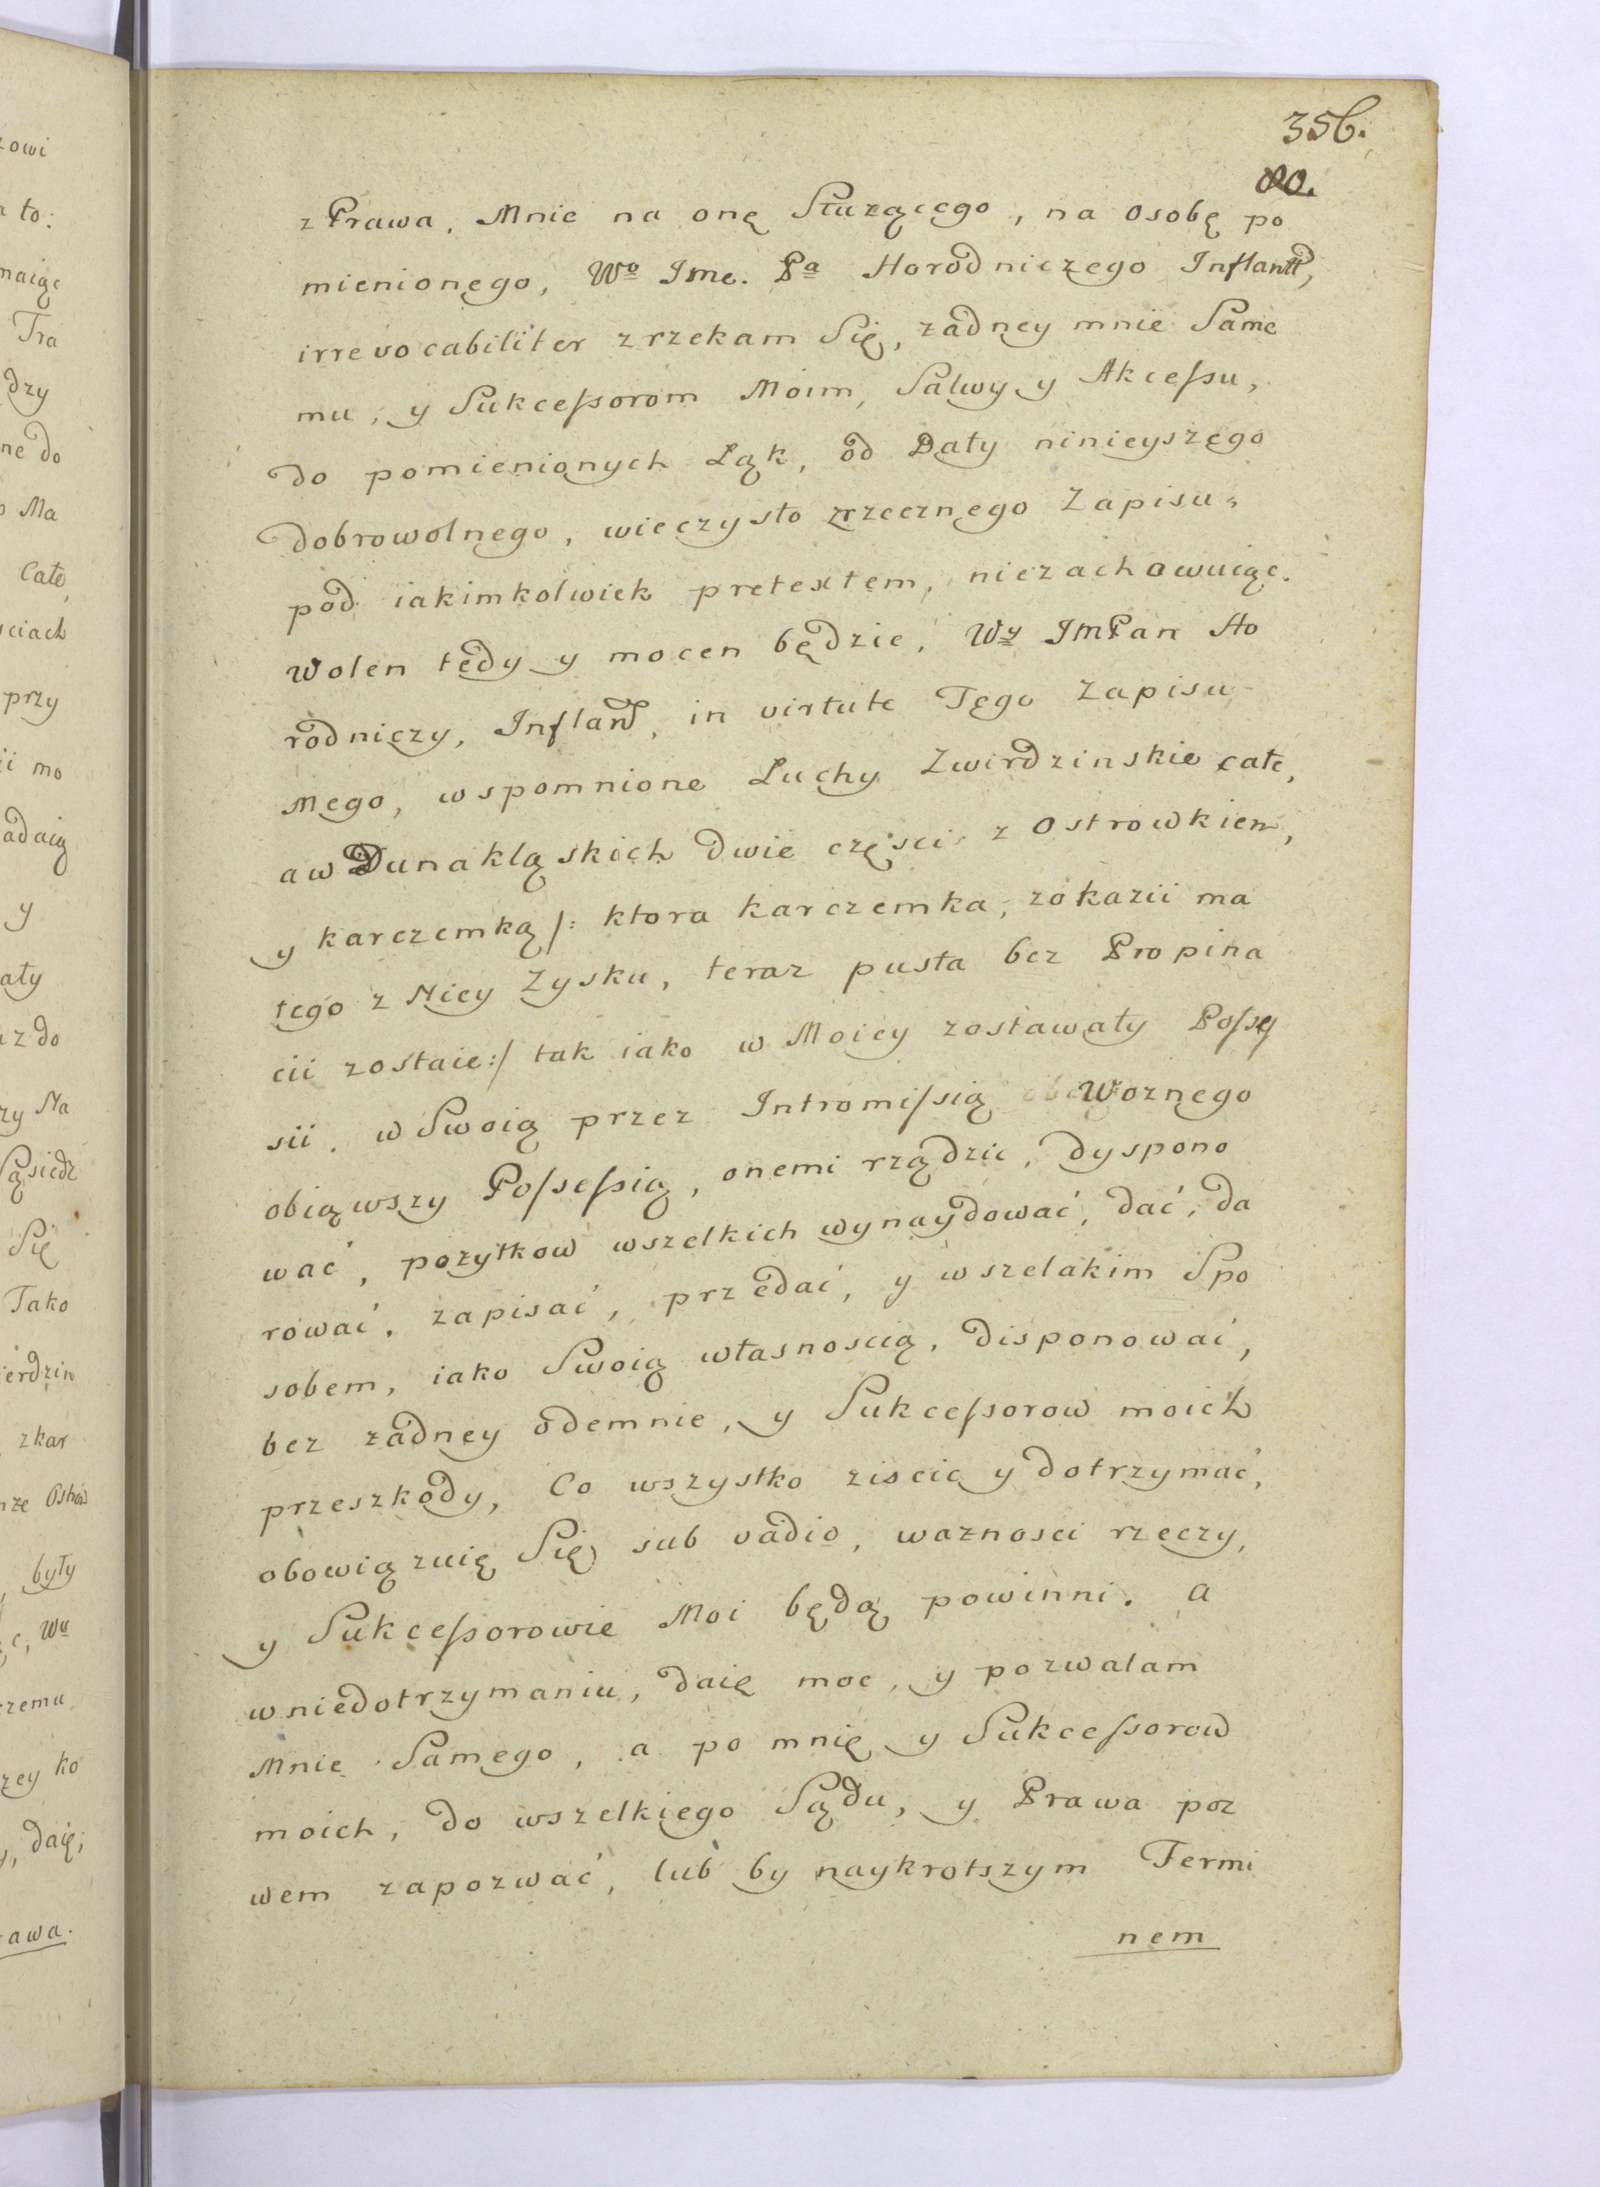 356.
80.
z Prawa, Mnie na onę Służącego, na osobę po
mienionego, Wo Jmc. Pa Horodniczego Inflantt,
irrevocabiliter zrzekam Się, żadney mnie Same
mu, y Sukcessorom Moim, Salwy y Akcessu,
do pomienionych Łąk, od Daty ninieyszego
dobrowolnego, wieczysto zrzecznego Zapisu,
pod iakimkolwiek pretextem, niezachowuiąc.
Wolen tedy y mocen będzie, Wy JMPan Ho
rodniczy, Inflant, in virtute Tego Zapisu
Mego, wspomnione Łuchy Zwirdzinskie całe,
a w Dunakląskich dwie części z Ostrowkiem,
y karczemką /: ktora karczemka, zokazii ma
łego z Niey Zysku, teraz pusta bez Propina
cii zostaie :/ tak iako w Moiey zostawały Posse
sii, w Swoią przez Intromissią Woznego
obiąwszy Possessią, onemi rządzić, dyspono
wać, pożytkow wszelkich wynaydować, dać, da
rować, zapisać, przedać, y wszelakim Spo
sobem, iako Swoią własnoscią, disponowai,
bez żadney odemnie, y Sukcessorow moich
przeszkody, Co wszystko ziscic y dotrzymać,
obowiązuię Się sub vadio, ważnosci rzeczy,
y Sukcessorowie Moi będą powinni. a
w niedotrzymaniu, daię moc, y pozwalam
Mnie Samego, a po mnię y Sukcessorow
moich, do wszelkiego Sądu, y Prawa poz
wem zapozwać, lub by naykrotszym Termi
nem
zowi
a to:
Tra
dzy
ne do
Ma
Całe,
sciach
przy
ii mo
adaią
y
ały
z do
zy Na
Sąsiedz
Się
Tako
ierdzin
zkar
były
c, Wu
rzemu
zey ko
daię;
rawa.